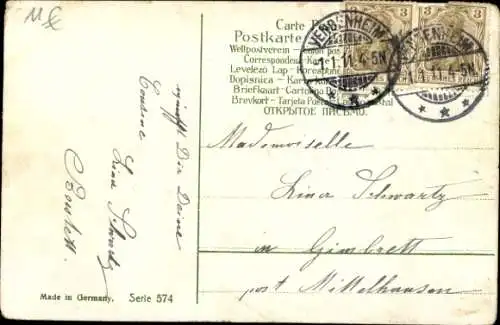 Carte
Postkarte
Weltpostverein
Correspondenz
Levelező Lap
Dopisnica
Briefkaart
Brevkort - Tarjeta
ОТКРЫТОЕ ПИСЬМО.
3
3
1.1.11. 4-5N
Mademoiselle
Lina Schwartz
in Gimbrett
post Mittelhausen
wünscht Dir Deine
Cousine Lina Schwartz
Made in Germany. Serie 574